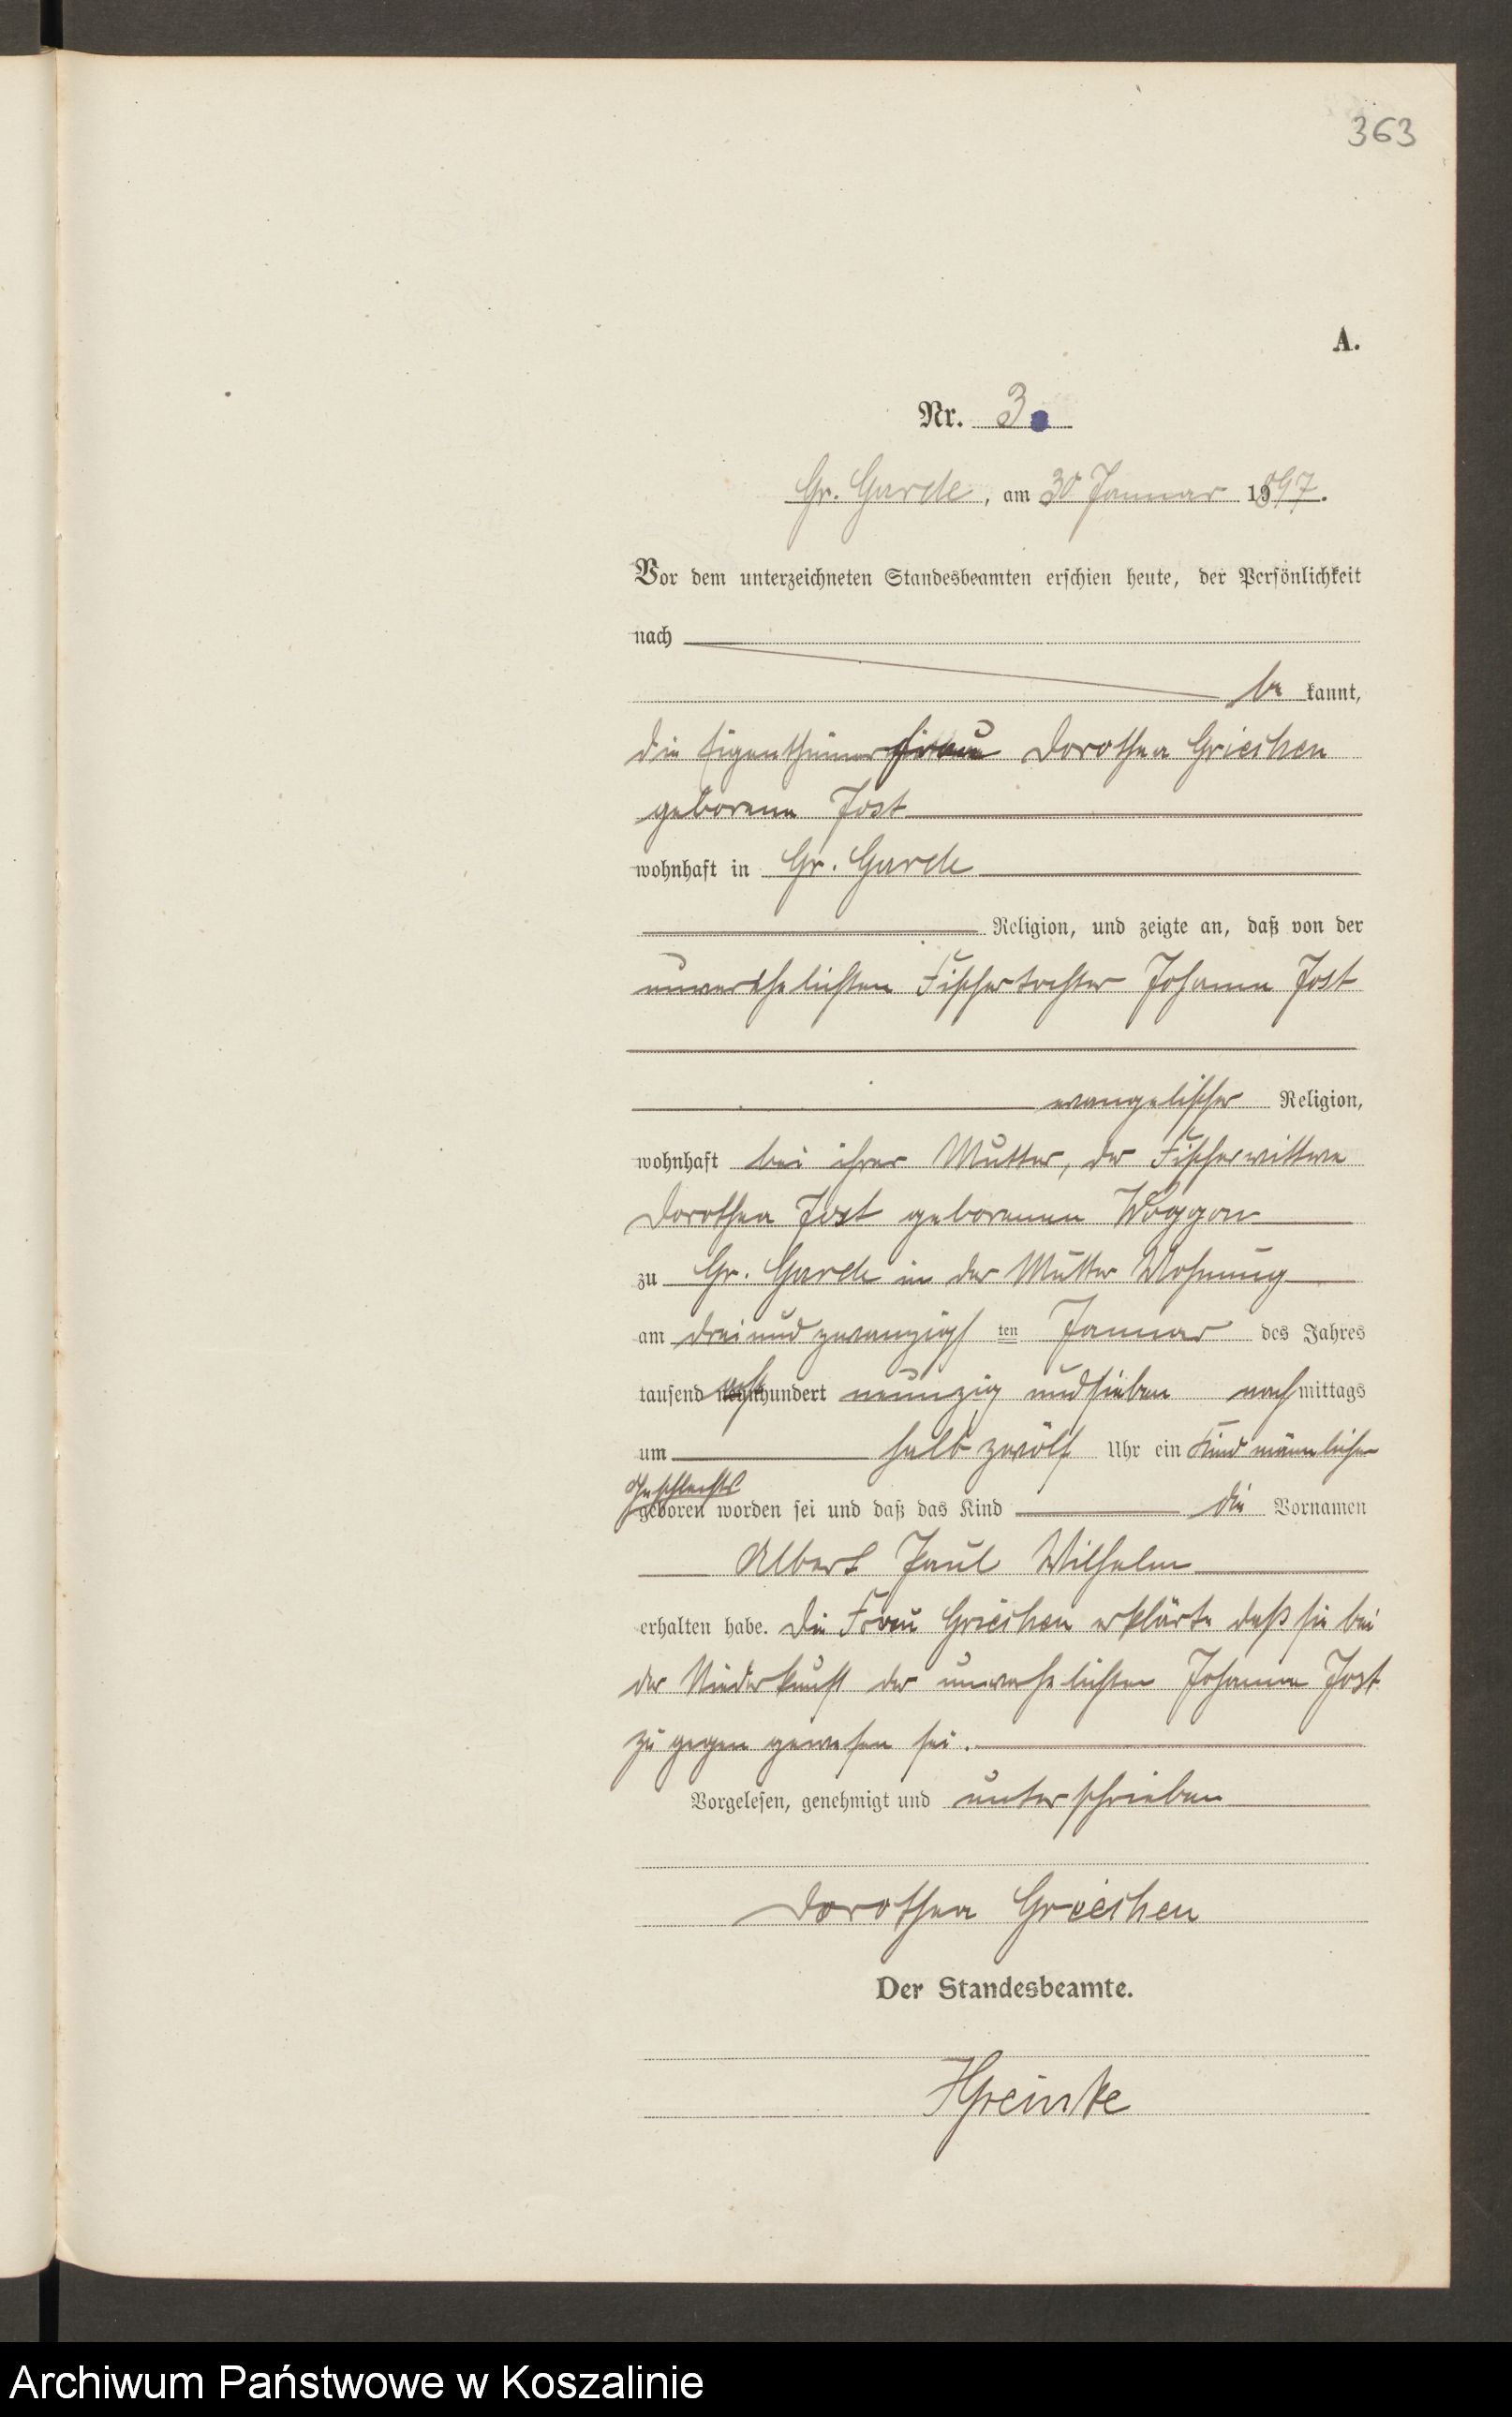 363
A.
Nr. 3.
Gr. Garde, am 30 Januar 1897.
Vor dem unterzeichneten Standesbeamten erschien heute, der Persönlichkeit
nach
be kannt,
die Eigenthümerfrau Dorothea Grieshen
geborene Jost
wohnhaft in Gr. Garde
Religion, und zeigte an, daß von der
unverehelichten Fischertochter Johanna Jost
evangelischer Religion,
wohnhaft bei ihrer Mutter, der Fischerwittwe
Dorothea Jost geborenen Woggon
zu Gr. Garde in der Mutter Wohnung
am dreiundzwanzigsten Januar des Jahres
tausend achthundert neunzig und sieben nachmittags
um halb zwölf Uhr ein Kind männlichen
Geschlechts
geboren worden sei und daß das Kind die Vornamen
Albert Paul Wilhelm
erhalten habe. Die Frau Grieshen erklärte daß sie bei
der Niederkunft der unverehelichten Johanna Jost
zugegen gewesen sei.
Vorgelesen, genehmigt und unterschrieben
Dorothea Grieshen
Der Standesbeamte.
HGreinke
Archiwum Państwowe w Koszalinie